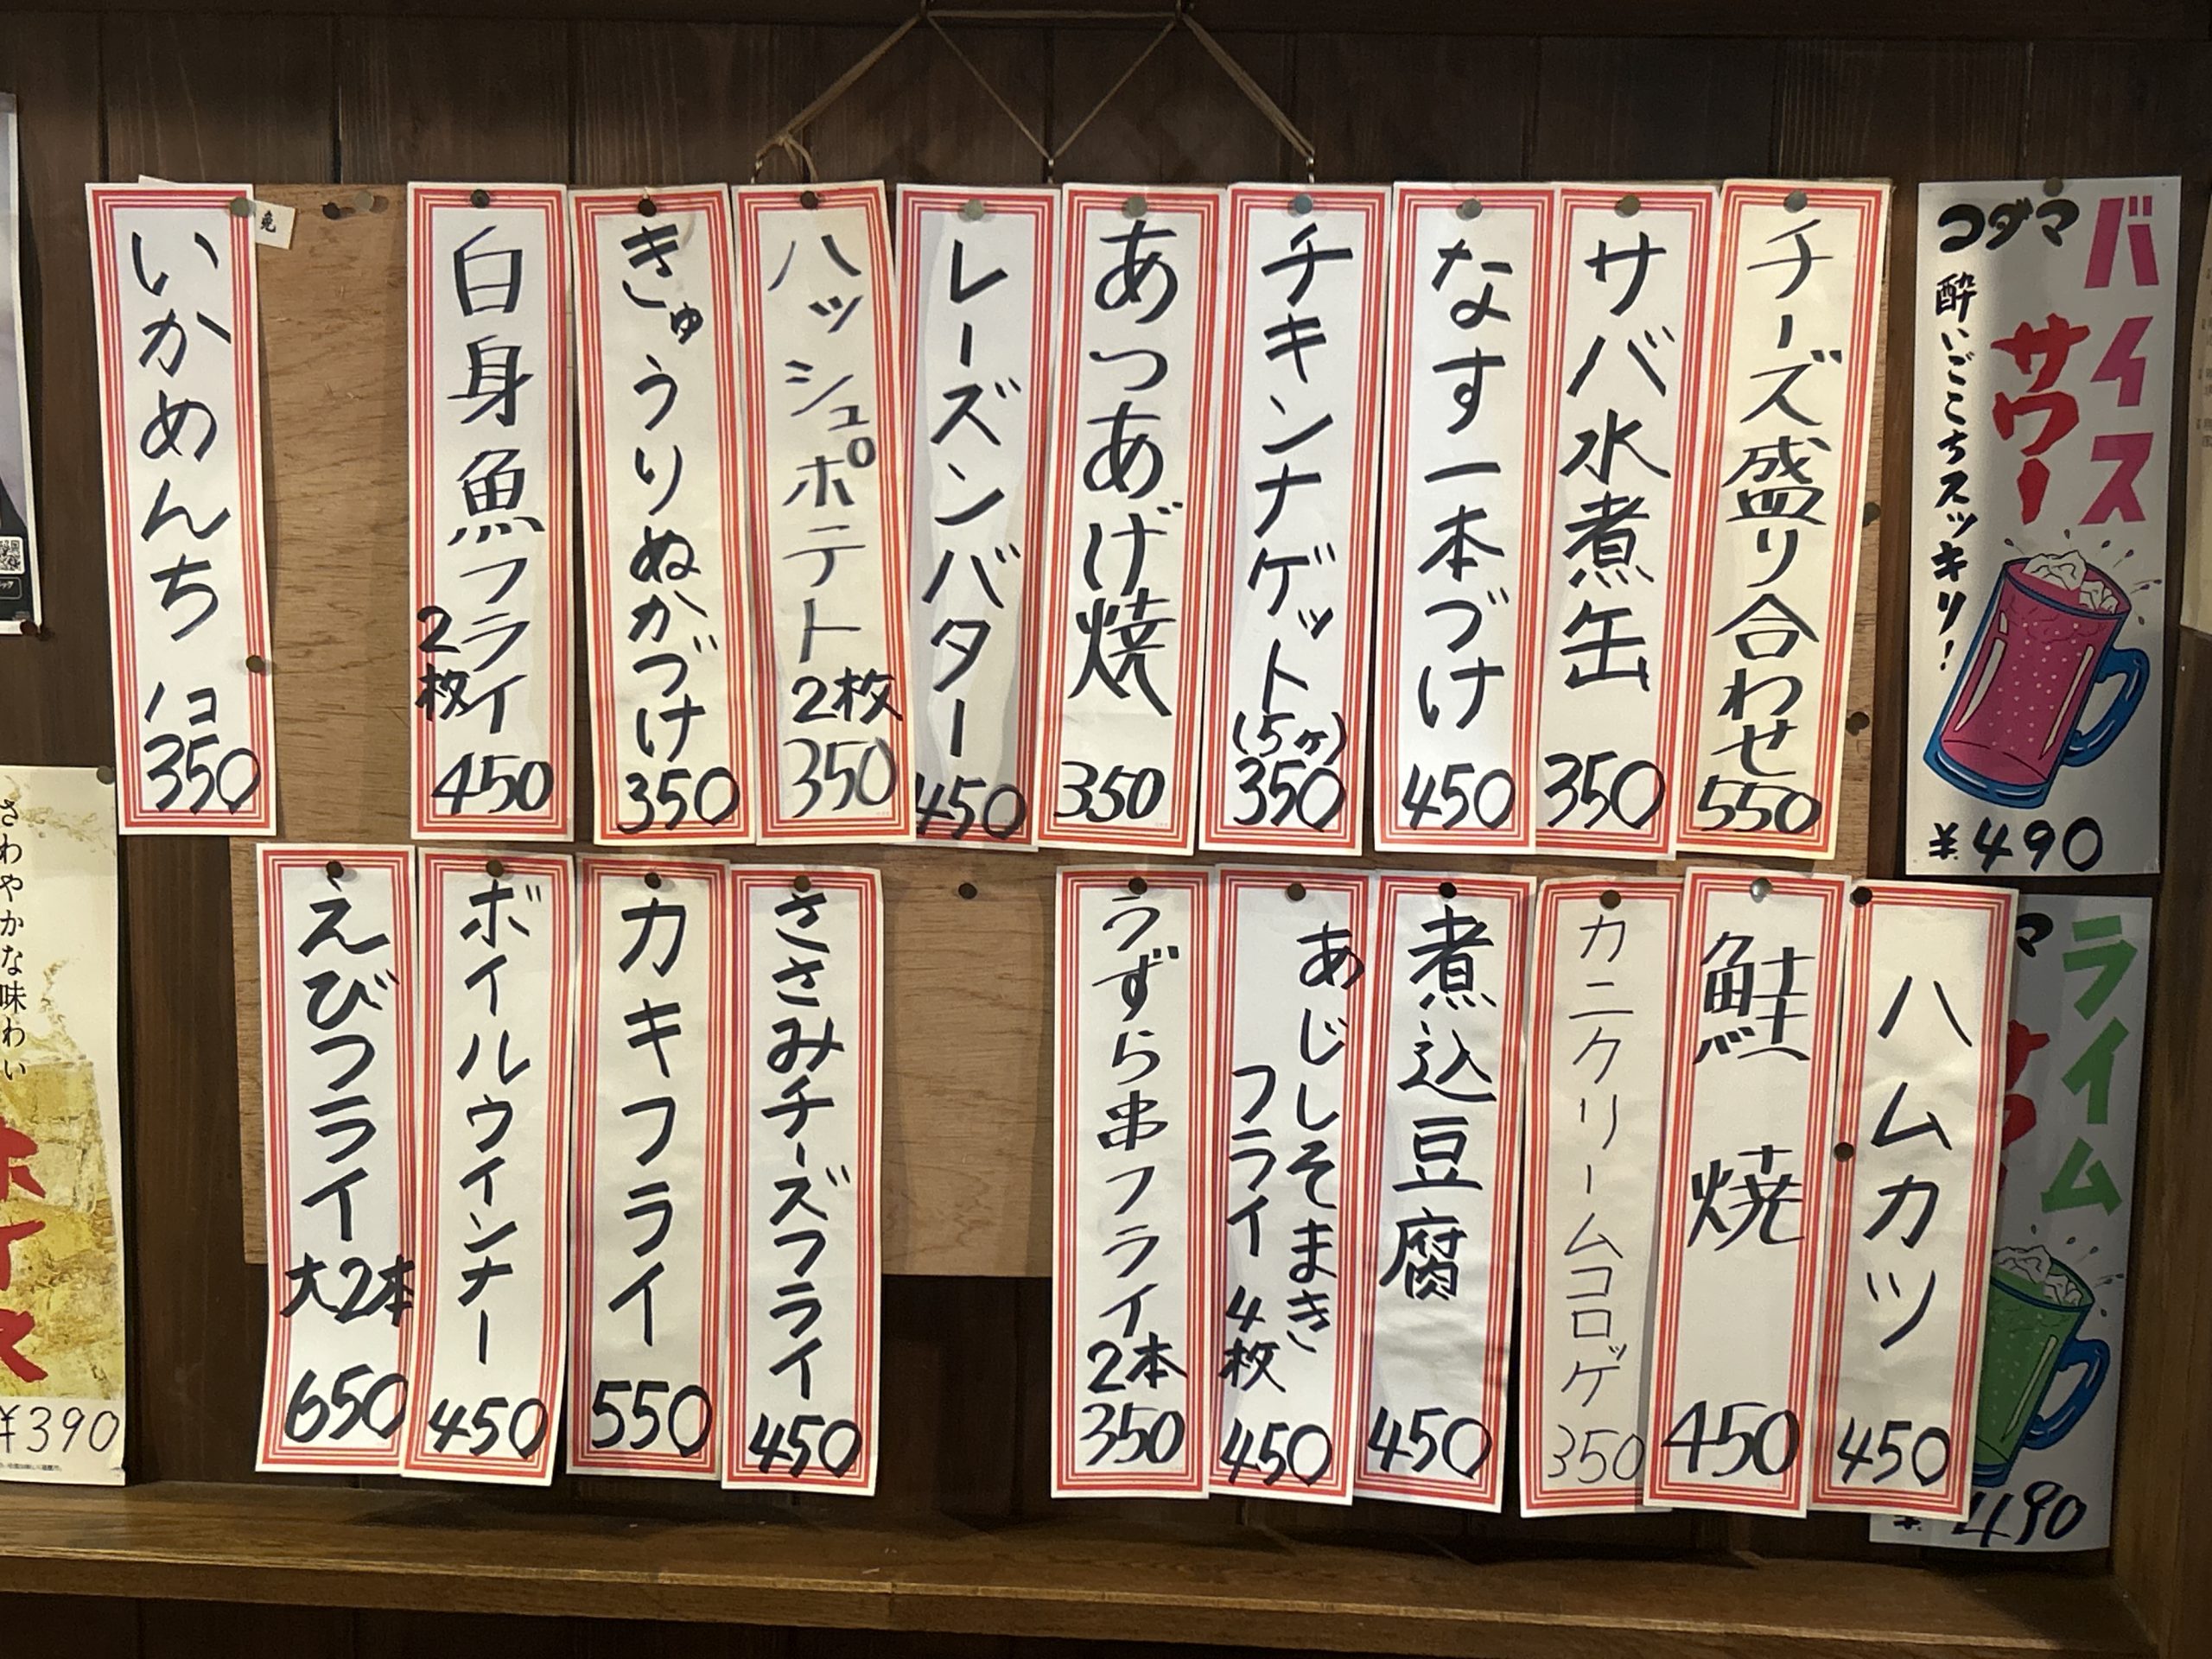 コダマ
バイス
サワー
酔いごこちスッキリ!
¥490
チーズ盛り合わせ
550
サバ水煮缶
350
なす一本づけ
450
チキンナゲット
(5ヶ)
350
あつあげ焼
350
レーズンバター
450
ハッシュポテト
2枚
350
きゅうりぬかづけ
350
白身魚フライ
2枚
450
いかめんち
1コ
350
マ
ライム
490
ハムカツ
450
鮭焼
450
カニクリームコロッケ
350
煮込豆腐
450
あじしそまき
フライ
4枚
450
うずら串フライ
2本
350
ささみチーズフライ
450
カキフライ
550
ボイルウインナー
450
えびフライ
大2本
650
さわやかな味わい
ホイス
¥390